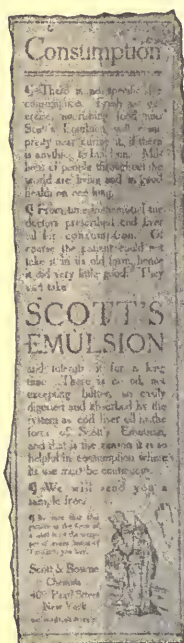 Consumption
¶ There is no specific for
consumption. Fresh air, ex-
ercise, nourishing food and
Scott's Emulsion will come
pretty near curing it, if there
is anything to build on. Mil-
lions of people throughout the
world are living and in good
health on one lung.
¶ From time immemorial the
doctors prescribed cod liver
oil for consumption. Of
course the patient could not
take it in its old form, hence
it did very little good. They
can take
SCOTT'S
EMULSION
and tolerate it for a long
time. There is no oil, not
excepting butter, so easily
digested and absorbed by the
system as cod liver oil in the
form of Scott's Emulsion,
and that is the reason it is so
helpful in consumption where
its use must be continuous.
¶ We will send you a
sample free.
¶ Be sure that this
picture in the form of
a label is on the wrap-
per of every bottle of
Emulsion you buy.
Scott & Bowne
Chemists
409 Pearl Street
New York